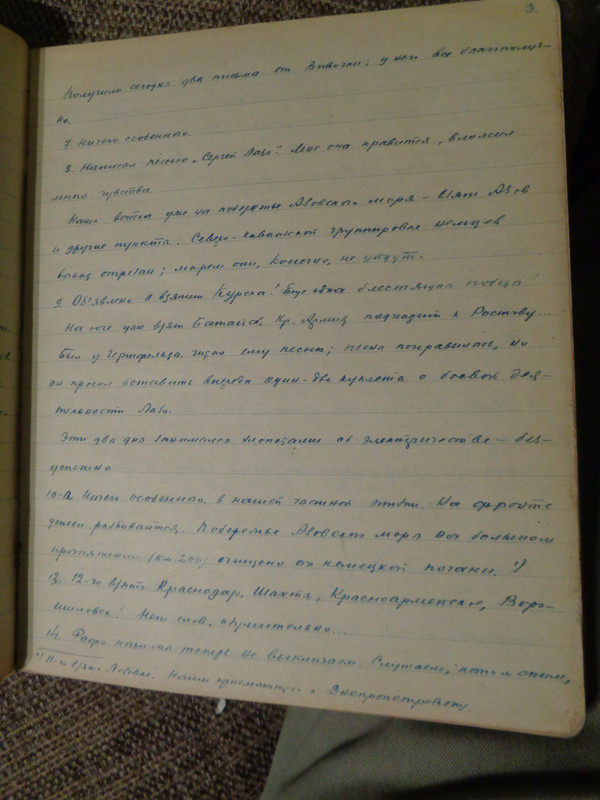 3.
Получили сегодня два письма от Вивочки; у них все благополуч-
но.
7. Ничего особенного.
8. Написал песню „Сергей Лазо“. Мне она нравится, вложил
много чувства.
Наши войска уже на побережье Азовского моря – взят Азов
и другие пункты. Северо-кавказской группировке немцев
выход отрезан; морем они, конечно, не уйдут.
9 Об'явлено о взятии Курска! Еще одна блестящая победа!
На юге уже взят Батайск, Кр. Армия подходит к Ростову...
Был у Герцфельда, читал ему песню; песня понравилась, но
он просил вставить еще один-два куплета о боевой дея-
тельности Лазо.
Эти два дня занимался хлопотами об электричестве – без-
успешно
10-12 Ничего особенного в нашей частной жизни. На фронте
успехи развиваются. Побережье Азовского моря на большом
протяжении (км 200) очищено от немецкой погани. ¹)
13. 12-го взяты Краснодар, Шахты, Красноармейское, Воро-
шиловск! Нет слов, изумительно...
14. Радио наше мы теперь не выключаем. Слушаем, потом спим,
¹) взята Лозовая. Наши приближаются к Днепропетровску.